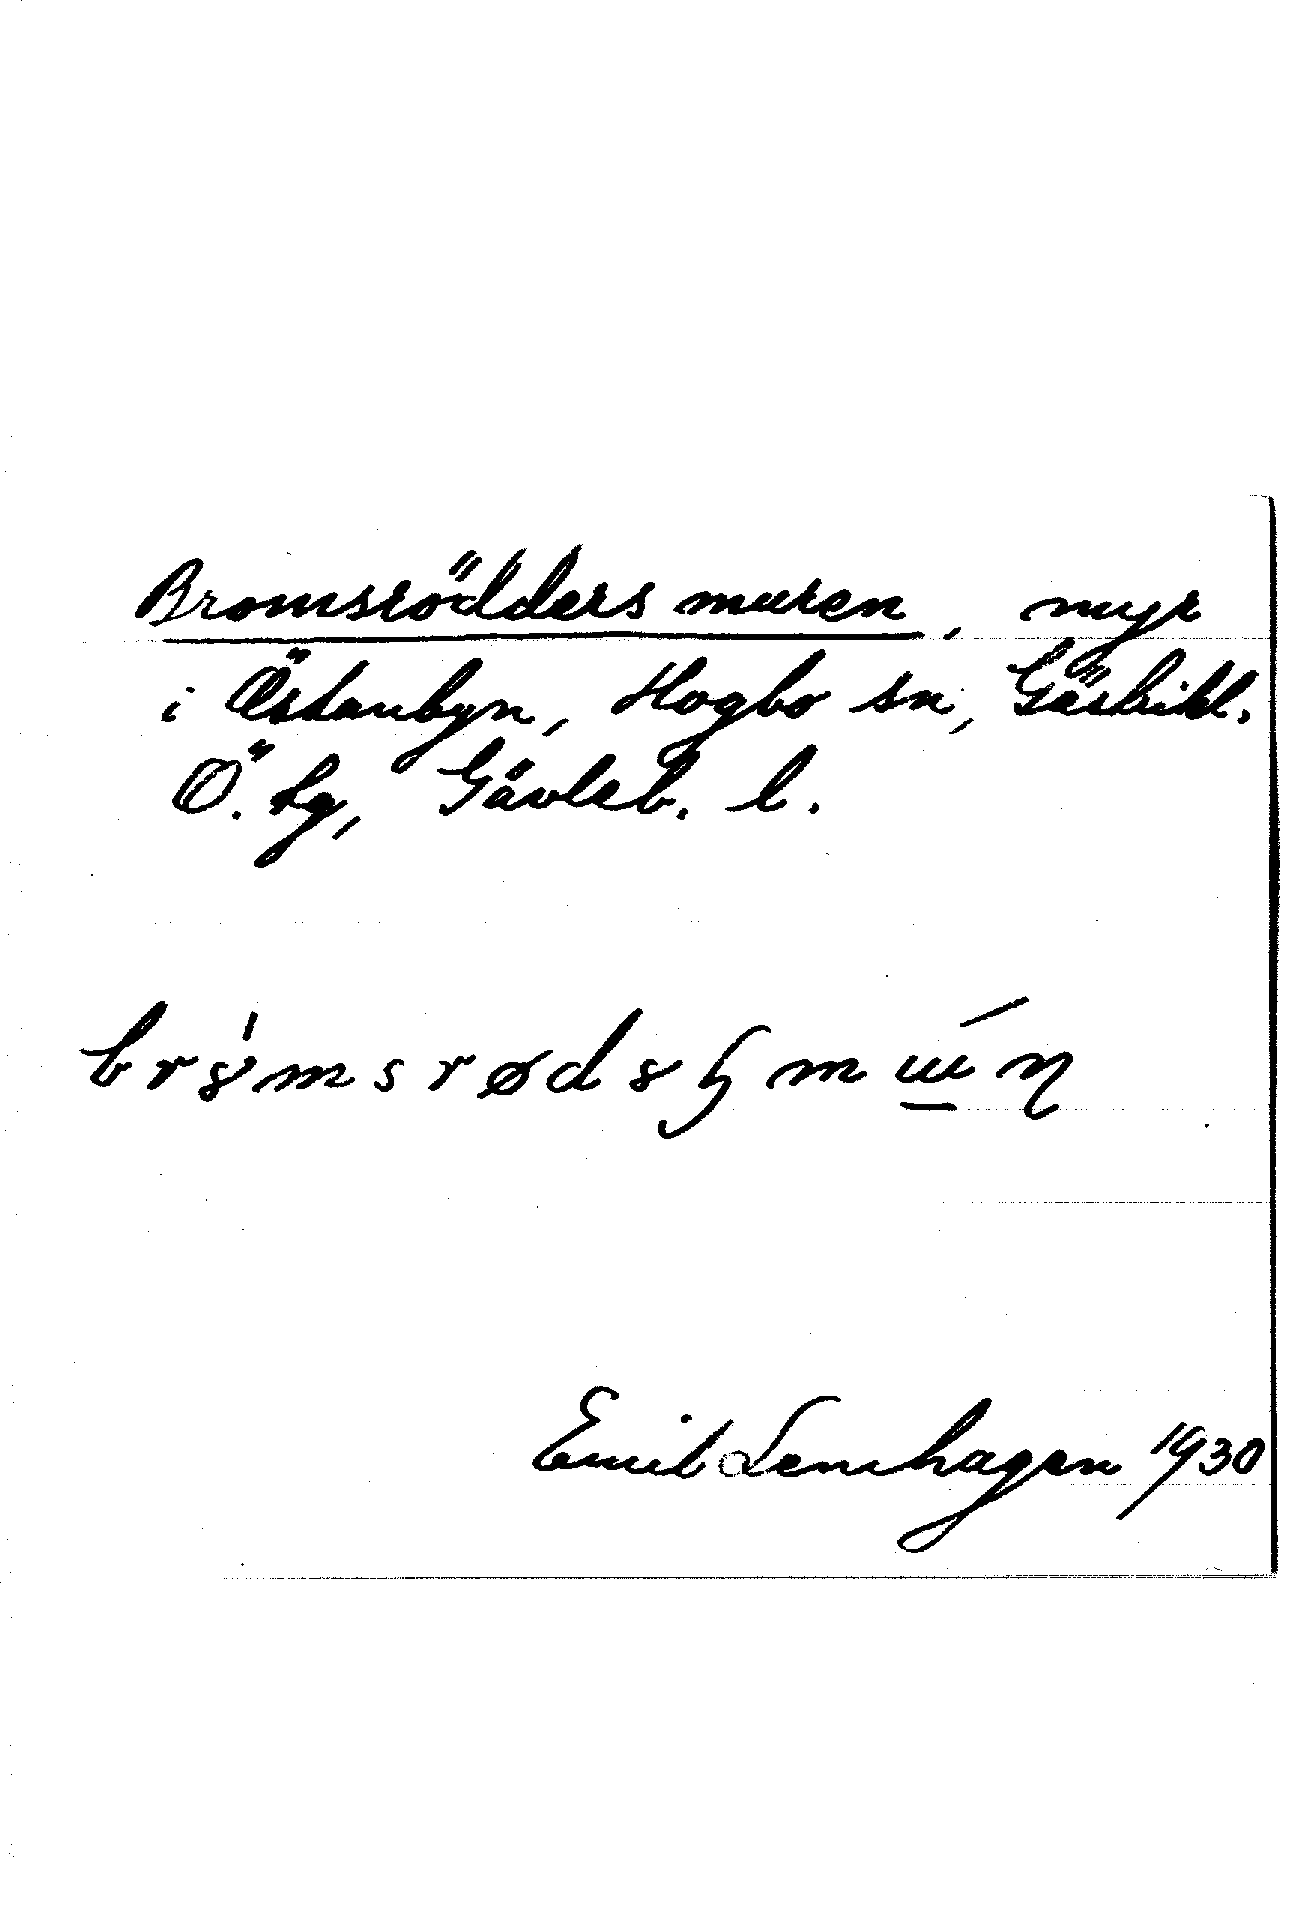 Bromsrödders muren, myr
i Östanbyn, Högbo sn, Gästrikl.
Ö. tg, Gävleb. l.
Emil Lenhagen 1930